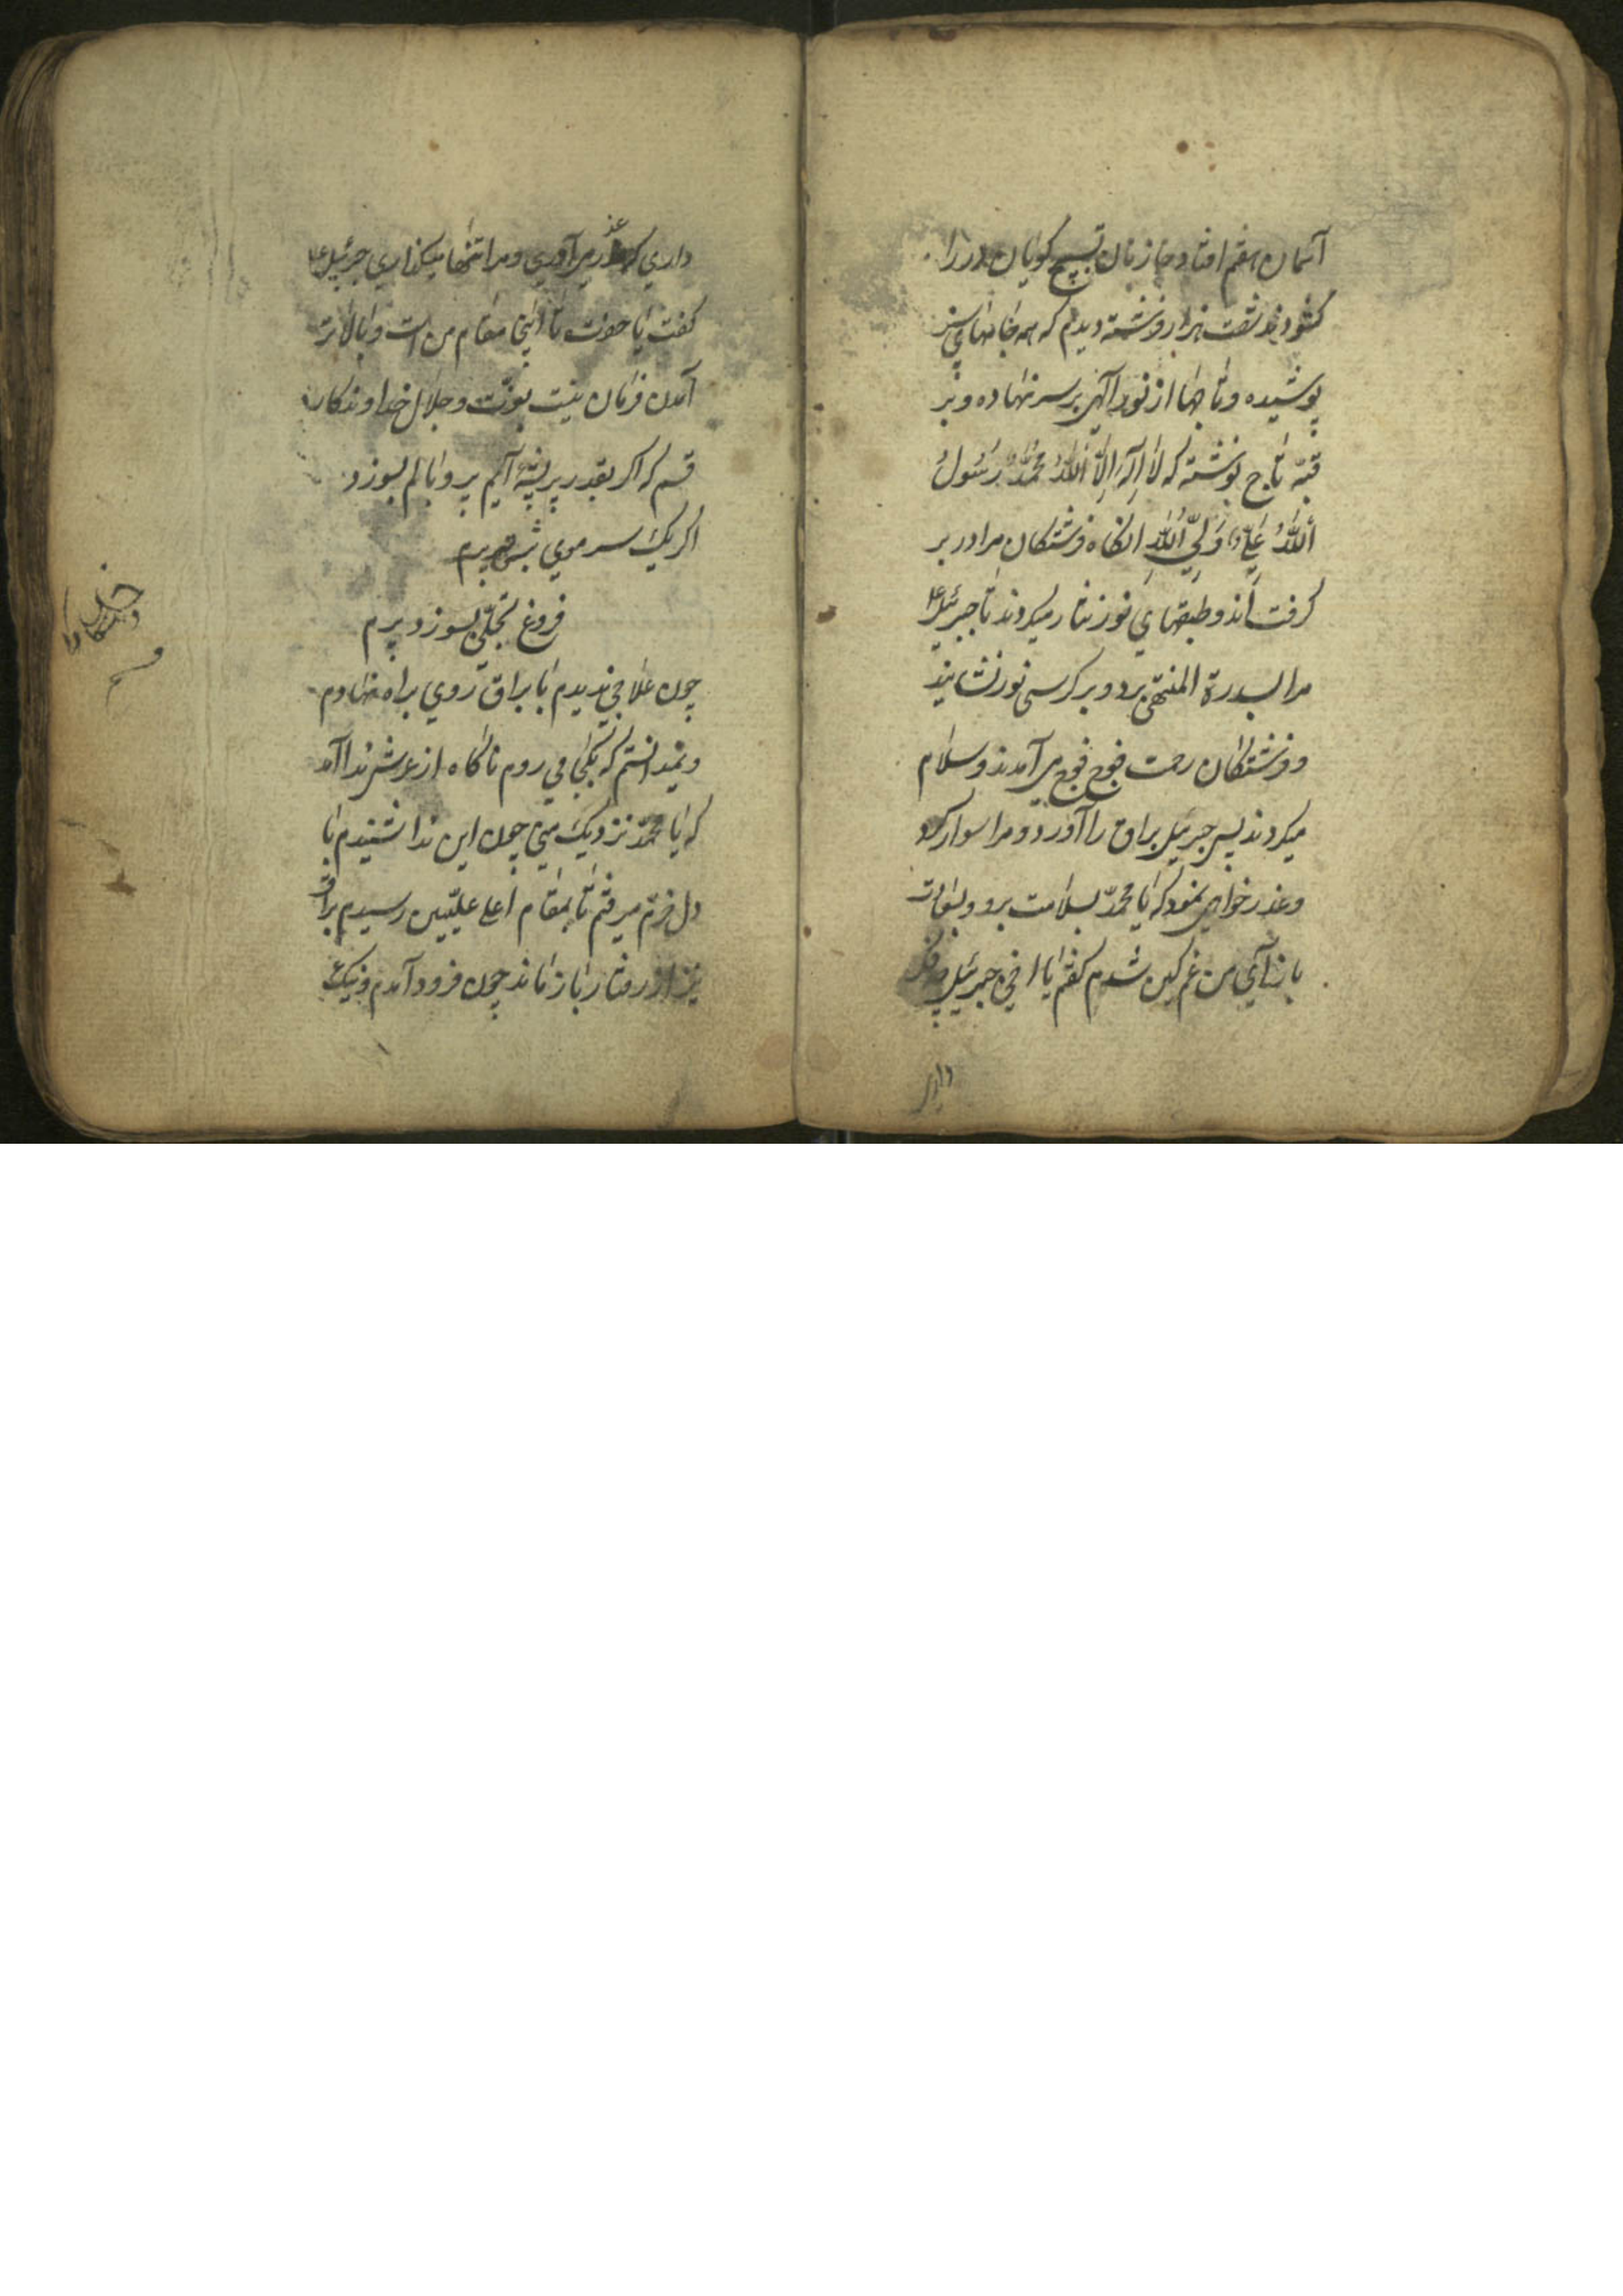 آسمان هفتم افتاد خازنان تسبیح کویان در را
کشودند شصت هزار فرشته دیدم که همه جامهای سبز
پوشیده و تاجها از نور الهی بر سر نهاده و بر
قبّه تاج نوشته که لا اله الا الله محمّد رسول
الله علی ولی الله انکاه فرشتکان مرا در بر
کرفت اند و طبقهای نور نثار میکردند تا جبرئیل ع
مرا بسدرة المنتهی برد و بر کرسی نور نشانید
و فرشتکان رحمت فوج فوج می آمدند و سلام
میکردند پس جبرئیل براق را آورد و مرا سوار کرد
و عذر خواهی نمود که یا محمّد بسلامت برو و بسعادت
باز آی من غم کین شدم کفتم یا اخی جبرئیل چه
داری
داری که عذر می آوری و مرا تنها میکذاری جبرئیل ع
کفت یا حضرت تا اینجا مقام من است و بالاتر
آمدن فرمان نیست بعزّت و جلال خداوندکار
قسم که اکر بقدر پر پشّهٔ آیم پر و بالم بسوزد
اکر یک سر موی برتر پرم
فروغ تجلّی بسوزد پرم
چون علاجی ندیدم با براق روی براه نهادم
و نمیدانستم که بکجا می روم ناکاه از عرش ندا آمد
که یا محمّد نزدیک من ای چون این ندا شنیدم با
دل خرّم میرفتم تا بمقام اعلی علیّین رسیدم براق
نیز از رفتار باز ماند چون فرود آمدم و نیک